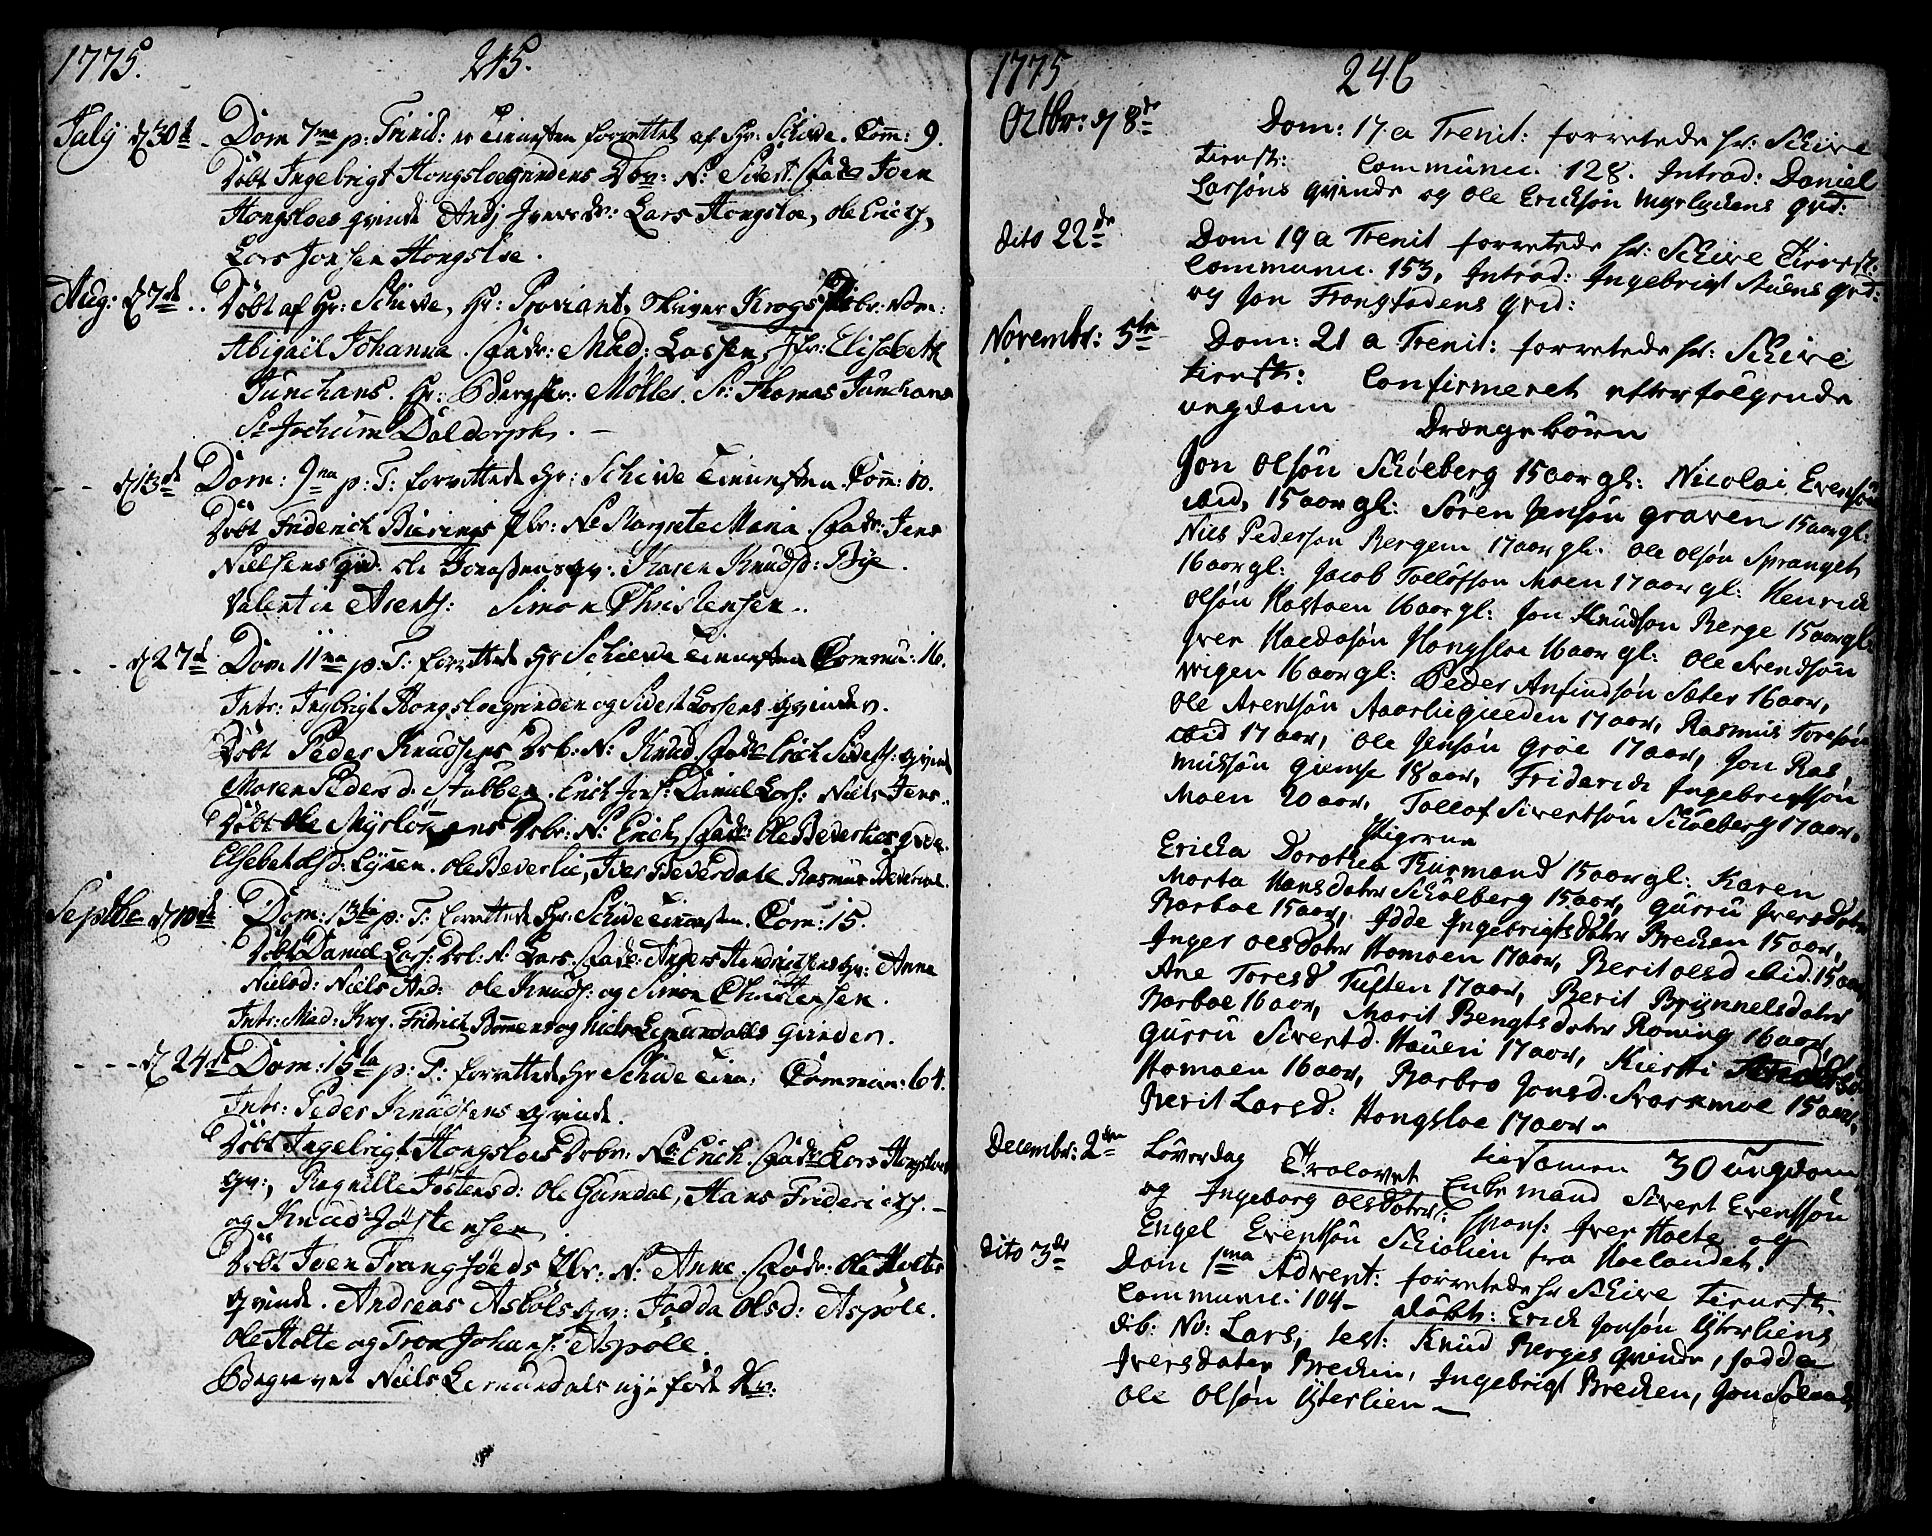 1775.
245.
July d 30te Dom 7ma p: Trenid: er Tienesten forrettet af Hr: Schive. Com: 9.
Döbt Ingebrigt Hongsloegrindens N: Sivert. Joen
Hongsloes qvinde Lars Hongsloe, Ole Erichs,
Lars Jonsen Hongsloe.
Aug: d 7de Döbt af Hr: Schive, Hr: Proviant, Skriver Krogs
Abigaïl Johanna. Fadr: Mad: Lassen, Jfr: Elisabeth
Junchans. Hr: Møller. Sr: Thomas Junchans
Sr Jochum Daldorph. -
- - d 13de Dom: 9na p: T: forrettede Hr: Schive Tienesten Com: 10.
Döbt Friderich Bierings Pbr: Ne Margrete Maria Fadr: Jens
Nielsens qvd. Karen Knudsd: Bye.
Valentin Arents: Simon Christensen.
- - - d 27d Dom 11ma p: T: forrettede Hr Schive Tienesten Commu: 16.
Intr: Ingebrigt Hongsloegrinden og Sivert Larsens qvinder.
Döbt Peder Knudsens Drb: N: Knud. Fadr: Erich Siverts: qvinde
Maren Pedersd. Stubben. Erich Jens: Daniel Lars: Niels Jens.
Döbt Ole Drbr: N: Erich, Fadr: Ole Beverlies qvde
Ole Beverlie, Iver Beverdale Rasmus Beverlie.
Septbr d 10de Dom: 13tia p: T: forrettede Hr: Schive Tienesten. Com: 15.
Döbt Daniel Lars: Drb: N: Lars. Fadr: Anders Hendrichsens qv: Anne
Nielsd: Niels And: Ole Knuds: og Simon Christensen.
Intr: Mad: Krog. Fridrich og Niels Lemundalls qvinder.
- - - d 24de Dom: 15ta p: T: forrettede Hr Schive Tien: Commun: 64.
Intr: Peder Knudsens qvinde.
Döbt Ingebrigt Hongsloes Drbr: Ne: Erich. Fadr: Lars Hongsloes
qv:, Ragnille Jostensd: Ole Gumdal, Hans Friderichs. -
og Knud Jøstensen.
Döbt Joen Frangføeds Pbr: N: Anne. Fadr: Ole Holtes
qvinde. Andreas Asböls qv: Jodda Olsd: Aspöle.
Ole Holte og Tron Johans: Aspöle.
Begravet Niels Lemundals nye føde
1775
246
Octbr: d 8de Dom: 17. a Trenit: forrettede hr: Schive
tienst: Communic. 128. Introd: Daniel
Larsöns qvinde og Ole Ericksön Myrlyckens qvd:
dito 22de Dom 19 a Trenit forrettede hr: Schive Tienest:
Communic. 153, Introd: Ingebrigt Stuens qvd:
og Jon Frangfodens qvd:
Novembr: 5te Dom: 21 a Trenit: forrettede hr: Schive
tienste: Confirmeret efterfölgende
ungdom
Drængebörn
Jon Olsön Schöeberg 15 aar gl: Nicolai Evensön
ibid, 15 aar gl: Sören Jensön graven 15 aar gl:
Niels Pederson Bergem 17 aar gl. Ole Olsön Spranget
16 aar gl: Jacob Tollöfson Moen 17 aar gl: Henrich
Olsön Hastoen 16 aar gl: Jon Knudson Berge 15 aar gl:
Iver Haldosön Hongsloe 16 aar gl: Ole Svendsön
Vigen 16 aar gl: Peder Anfindsön Sæter 16 aar,
Ole Arentsön Aarlivqueden 17 aar, Rasmus Toresön
ibid 17 aar, Ole Jensön Gröe 17 aar, Jon Ras,
mussön giemse 18 aar, Friderich Ingebrigtsön
Moen 20 aar, Tollof Sivertsön Schölberg 17 aar.
Pigerne
Ericka Dorothea Thurmand 15 aar gl: Karen
Marta Hansdater Schölberg 15 aar, Gurru Iversdater
Barboe 15 aar, Idde Ingebrigtsdater Brecken 15 aar,
Inger Olsdater Homoen 17 aar, Berit Olsd ibid. 15 aar,
Ane Toresd Tuften 17 aar, Berit Brynnelsdater
Barboe 16 aar, Marit Bengtsdater Roning 16 aar,
Gurru Sivertd. Hauen 17 aar, Kiersti
Homoen 16 aar, Barbro Jonsd. Svarkmoe 15 aar,
Berit Larsd: Hongsloe 17 aar.
tilsamen 30 ungdom
Decembr: 2den Löverdag Trolovet Enkemand Sivert Evensön
og Ingeborg Olsdater: Spons: Iver Holte og
Engel Evensön Schiölien fra Hoelandet.
dito 3de Dom 1ma Advent: forrettede hr Schive tienste.
Communic: 104 - döbt: Erich Jonsön Ytterliens
db: No: Lars, test: Knud Berges qvinde, Jodda
Iversdater Brecken, Ingebrigt Brecken, Jon
Ole Olsön Ytterlien -